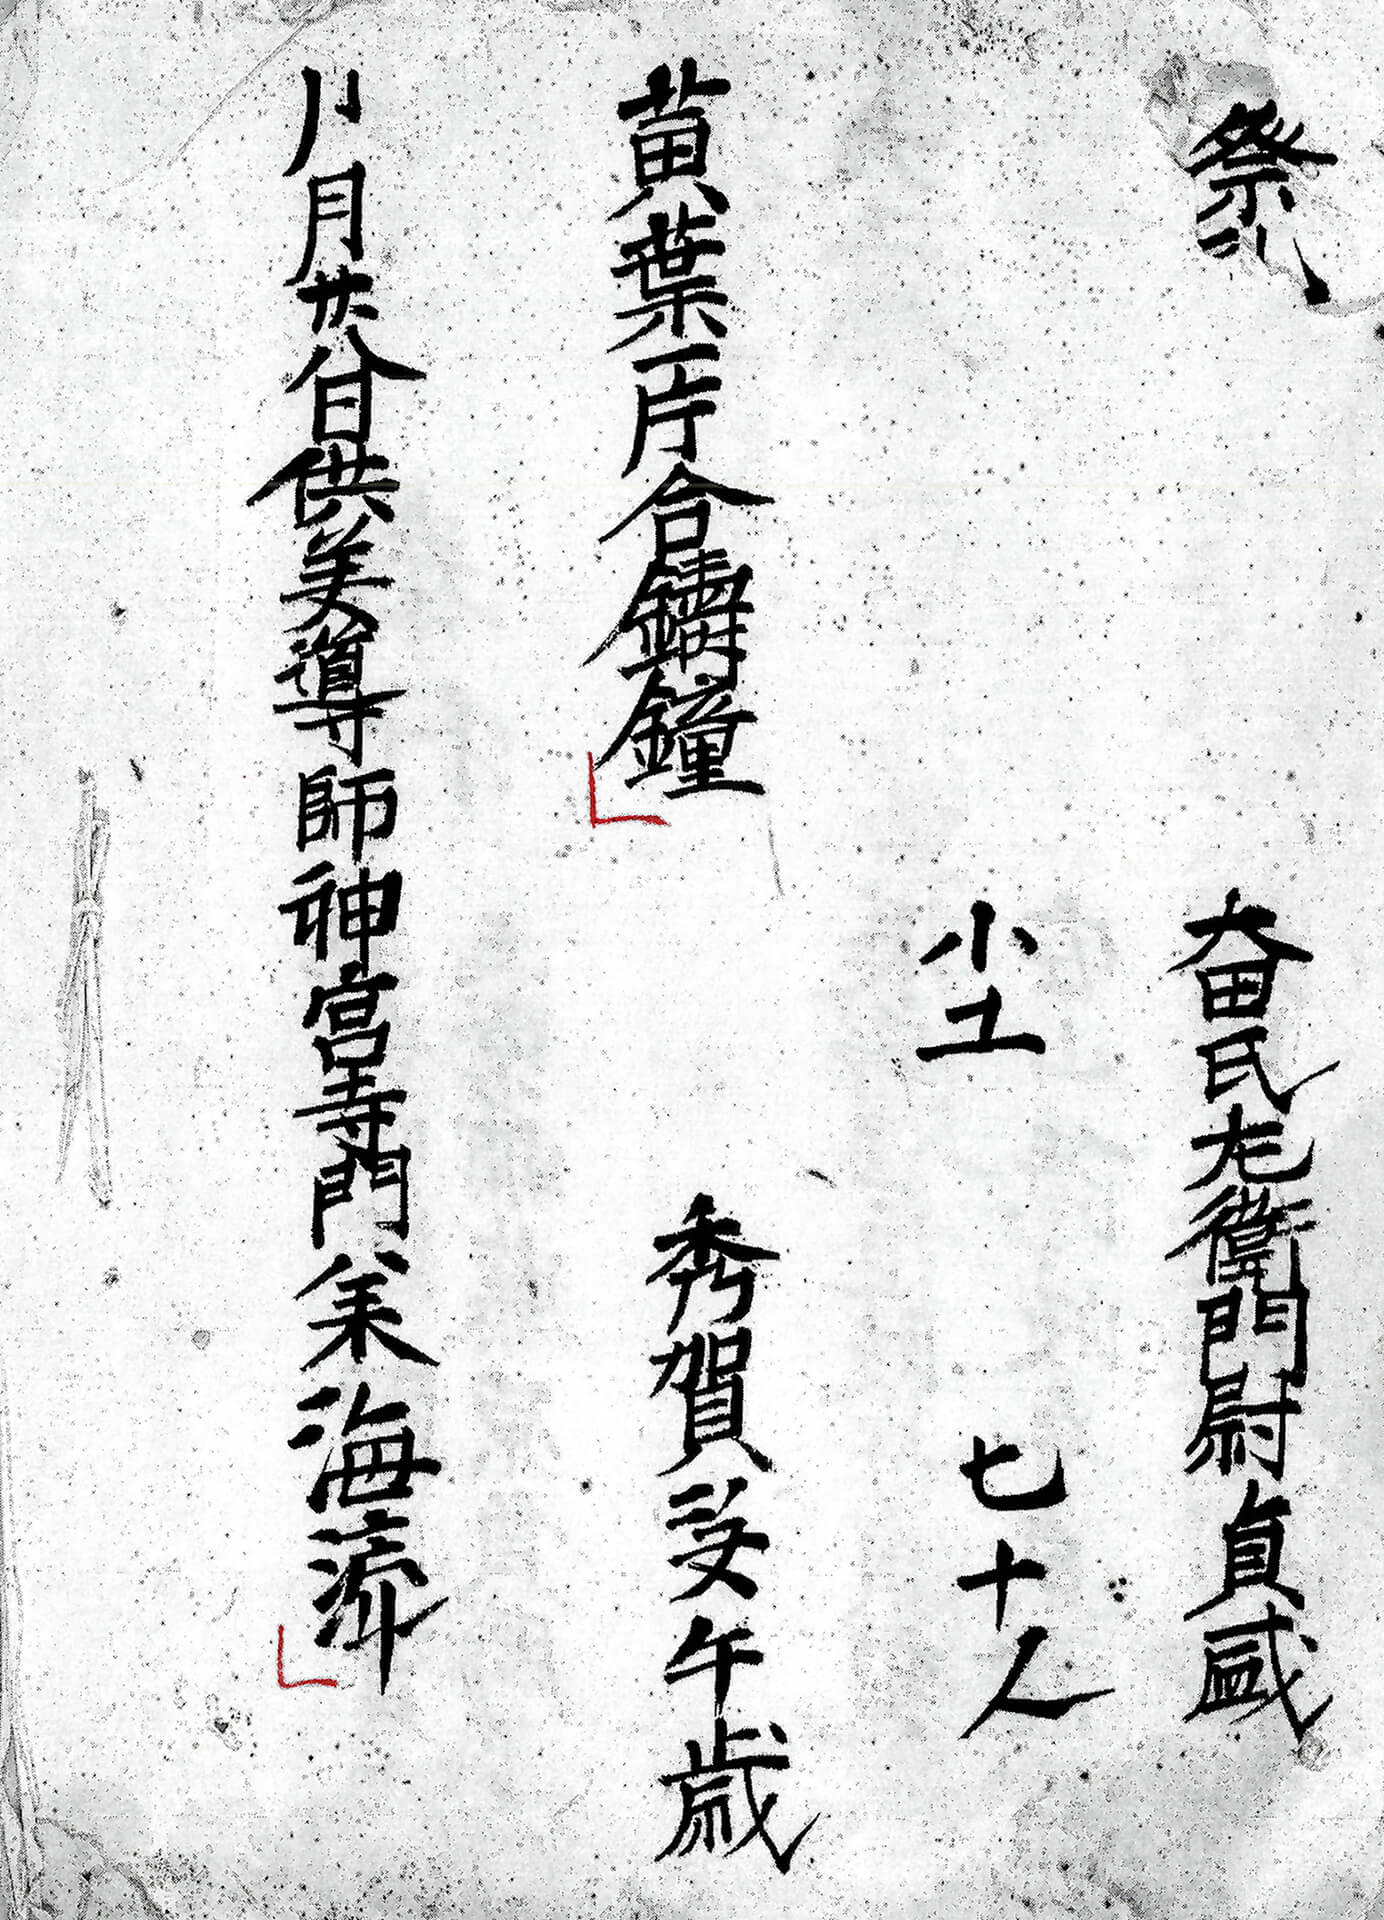 祭礼
奋氏左衛門尉貞盛
小工　七十人
黄葉一片合鑄鐘
秀賀安午歳
八月廿八日供養導師神宮寺門
海